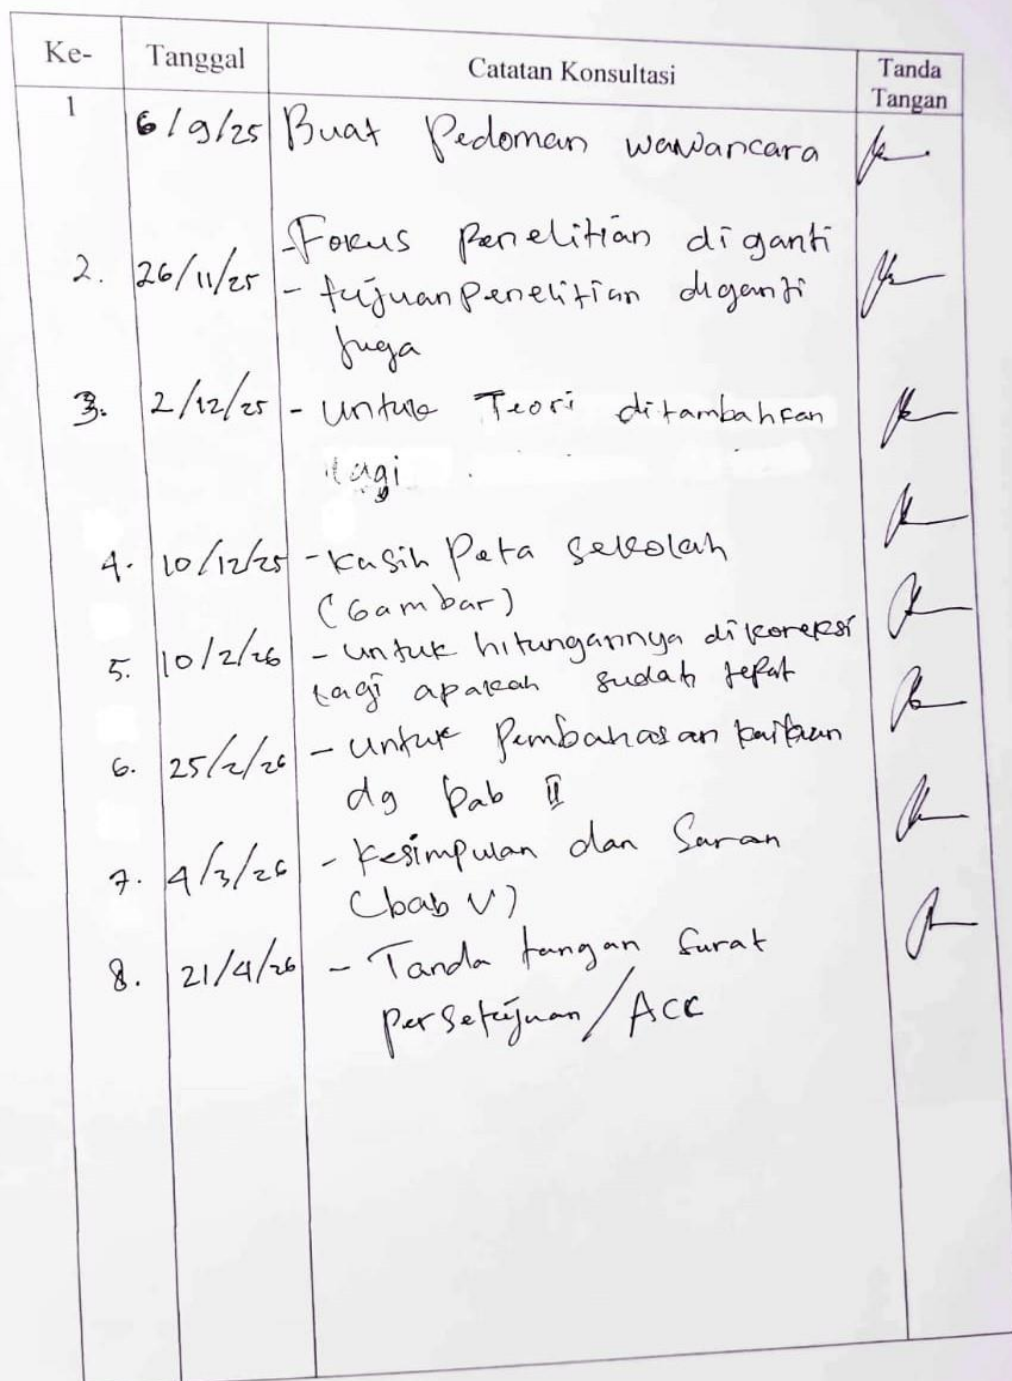 Ke- Tanggal Catatan Konsultasi Tanda Tangan
1 6/9/25 Buat Pedoman wawancara
-Fokus Penelitian diganti
2. 26/11/25 - tujuan Penelitian diganti
juga
3. 2/12/25 - untuk Teori ditambahkan
lagi
4. 10/12/25 - Kasih Peta sekolah
(Gambar)
5. 10/2/26 - untuk hitungannya dikoreksi
lagi apakah sudah tepat
6. 25/2/26 - untuk Pembahasan kaitkan
dg bab II
7. 4/3/26 - Kesimpulan dan Saran
(bab V)
8. 21/4/26 - Tanda tangan Surat
persetujuan/ACC